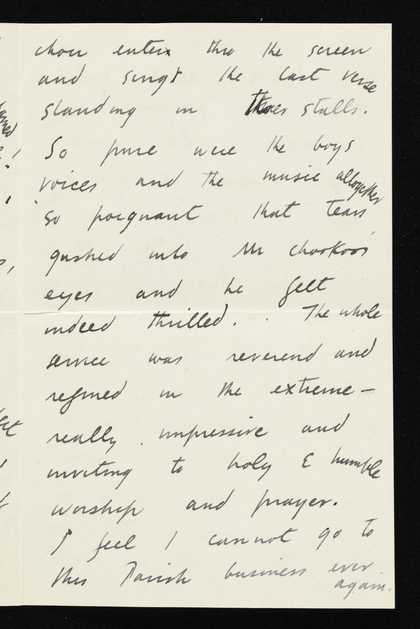 choir enters thro the screen
and sings the last verse
standing in their stalls.
So pure were the boys
voices and the music altogether
so poignant that tears
gushed into Mr Chookoos
eyes and he felt
indeed thrilled. . The whole
service was reverend and
refined in the extreme –
really impressive and
inviting to holy & humble
worship and prayer.
I feel I cannot go to
this Parish business ever
again.